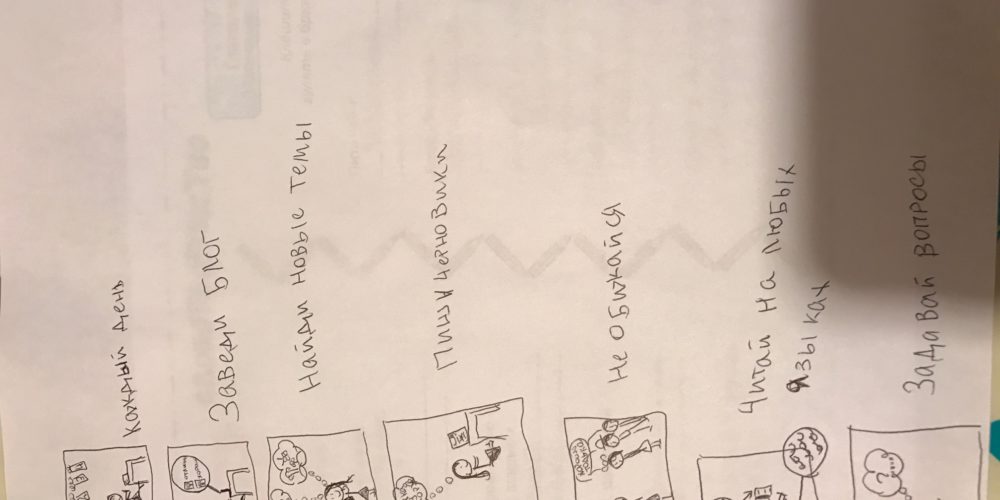 каждый день
Заведи Блог
Найди новые темы
Пиши черновики
Не обижайся
Читай на любых
языках
Задавай вопросы